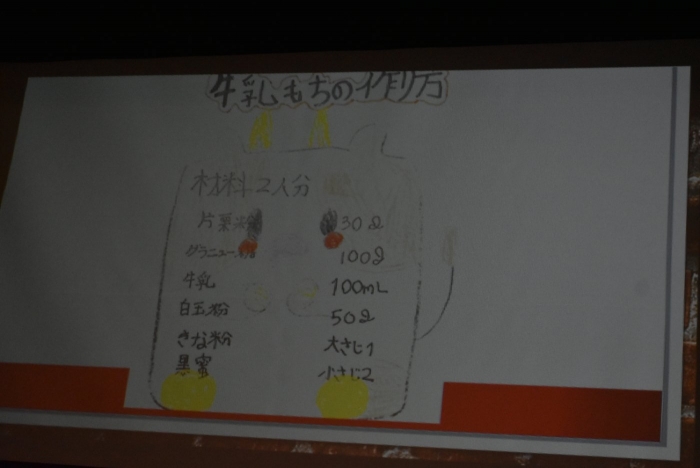 牛乳もちの作り方
材料2人分
片栗粉 30g
グラニュー糖 100g
牛乳 100mL
白玉粉 50g
きな粉 大さじ1
黒蜜 小さじ2